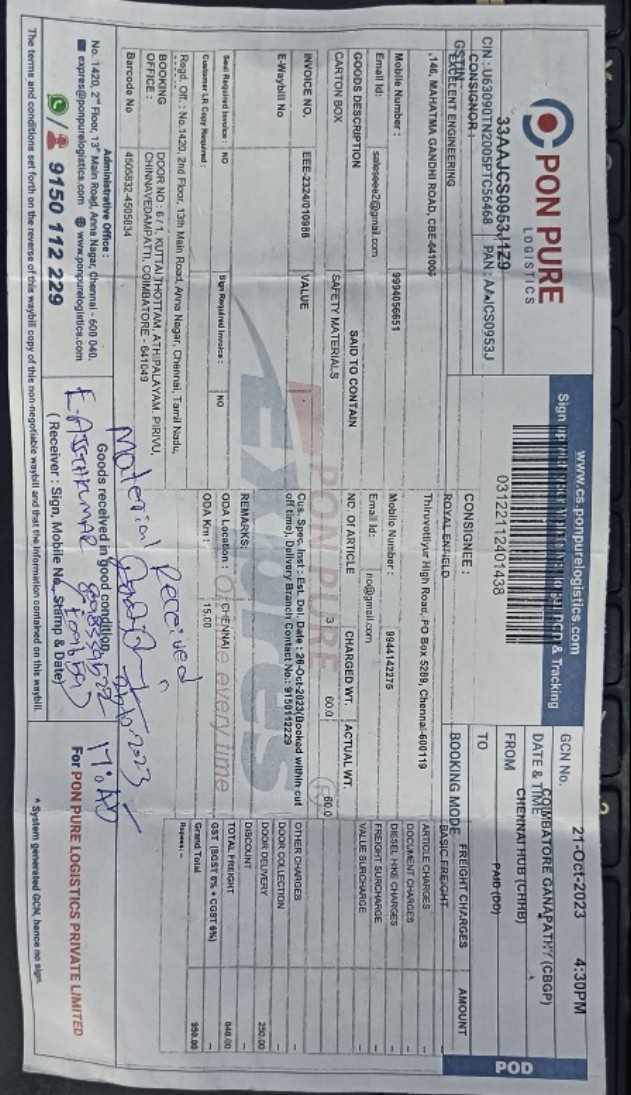 PON PURE
LOGISTICS
www.cs.ponpurelogistics.com
Sign up & Tracking
03122112401438
GCN No.
21-Oct-2023 4:30PM
DATE & TIME
COIMBATORE GANAPATHY (CBGP)
FROM
CHENNAI HUB (CHHB)
TO
PAID (DD)
BOOKING MODE
POD
33AAJCS0953J1Z9
CIN : U63090TN2005PTC56468 PAN : AAJCS0953J
GSTIN
CONSIGNOR :
EXCELENT ENGINEERING
,146, MAHATMA GANDHI ROAD, CBE-641006
Mobile Number : 9994056651
Email Id: saleseee2@gmail.com
CONSIGNEE :
ROYAL ENFIELD
Thiruvottiyur High Road, PO Box 5289, Chennai-600119
Mobile Number : 9944142275
Email Id: no@gmail.com
GOODS DESCRIPTION SAID TO CONTAIN NO. Of ARTICLE CHARGED WT. ACTUAL WT.
CARTON BOX SAFETY MATERIALS 3 60.0 60.0
INVOICE NO. EEE-2324/010988 VALUE
E-Waybill No
Cus. Spec. Inst : Est. Del. Date : 26-Oct-2023(Booked within cut
off time), Delivery Branch Contact No.: 9150112229
REMARKS:
Seal Required Invoice : NO Sign Required Invoice : NO
Customer LR Copy Required :
ODA Location : CHENNAI
ODA Km : 15.00
PON PURE
EXPRES
every time
FREIGHT CHARGES AMOUNT
BASIC FREIGHT -
ARTICLE CHARGES -
DOCUMENT CHARGES -
DIESEL HIKE CHARGES -
FREIGHT SURCHARGE -
VALUE SURCHARGE -
OTHER CHARGES -
DOOR COLLECTION -
DOOR DELIVERY 250.00
DISCOUNT -
TOTAL FREIGHT
GST (SGST 6% + CGST 6%) -
Grand Total
Rupees: --
Regd. Off. : No.1420, 2nd Floor, 13th Main Road, Anna Nagar, Chennai, Tamil Nadu,
BOOKING OFFICE :
DOOR NO : 6 / 1, KUTTAI THOTTAM, ATHIPALAYAM, PIRIVU,
CHINNAVEDAMPATTI, COIMBATORE - 641049
Barcode No 4505832-4505834
Received
Material
2023
Goods received in good condition,
E. AJITHKUMAR
(Receiver : Sign, Mobile No, Stamp & Date)
For PON PURE LOGISTICS PRIVATE LIMITED
Administrative Office :
No. 1420, 2nd Floor, 13th Main Road, Anna Nagar, Chennai - 600 040.
expres@ponpurelogistics.com www.ponpurelogistics.com
9150 112 229
* System generated GCN, hence no sign.
The terms and conditions set forth on the reverse of this waybill copy of this non-negotiable waybill and that the information contained on this waybill.